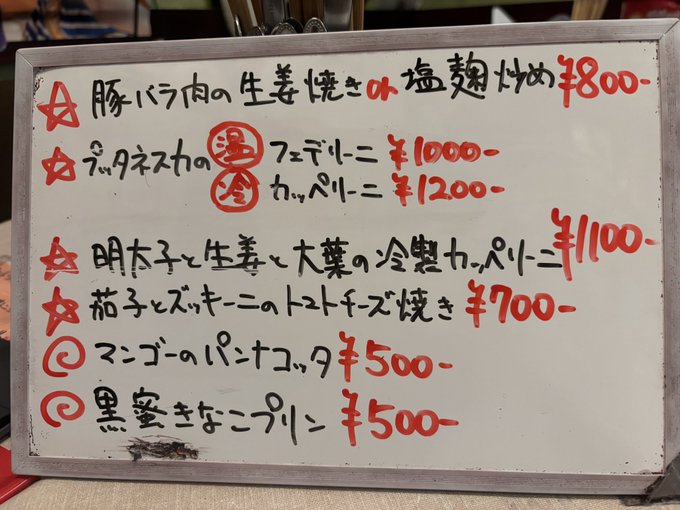 ☆豚バラ肉の生姜焼きor塩麹炒め¥800-
☆プッタネスカの㊤温 フェデリーニ ¥1000-
冷 カッペリーニ ¥1200-
☆明太子と生姜と大葉の冷製カッペリーニ ¥1100-
☆茄子とズッキーニのトマトチーズ焼き ¥700-
マンゴーのパンナコッタ ¥500-
黒蜜きなこプリン ¥500-